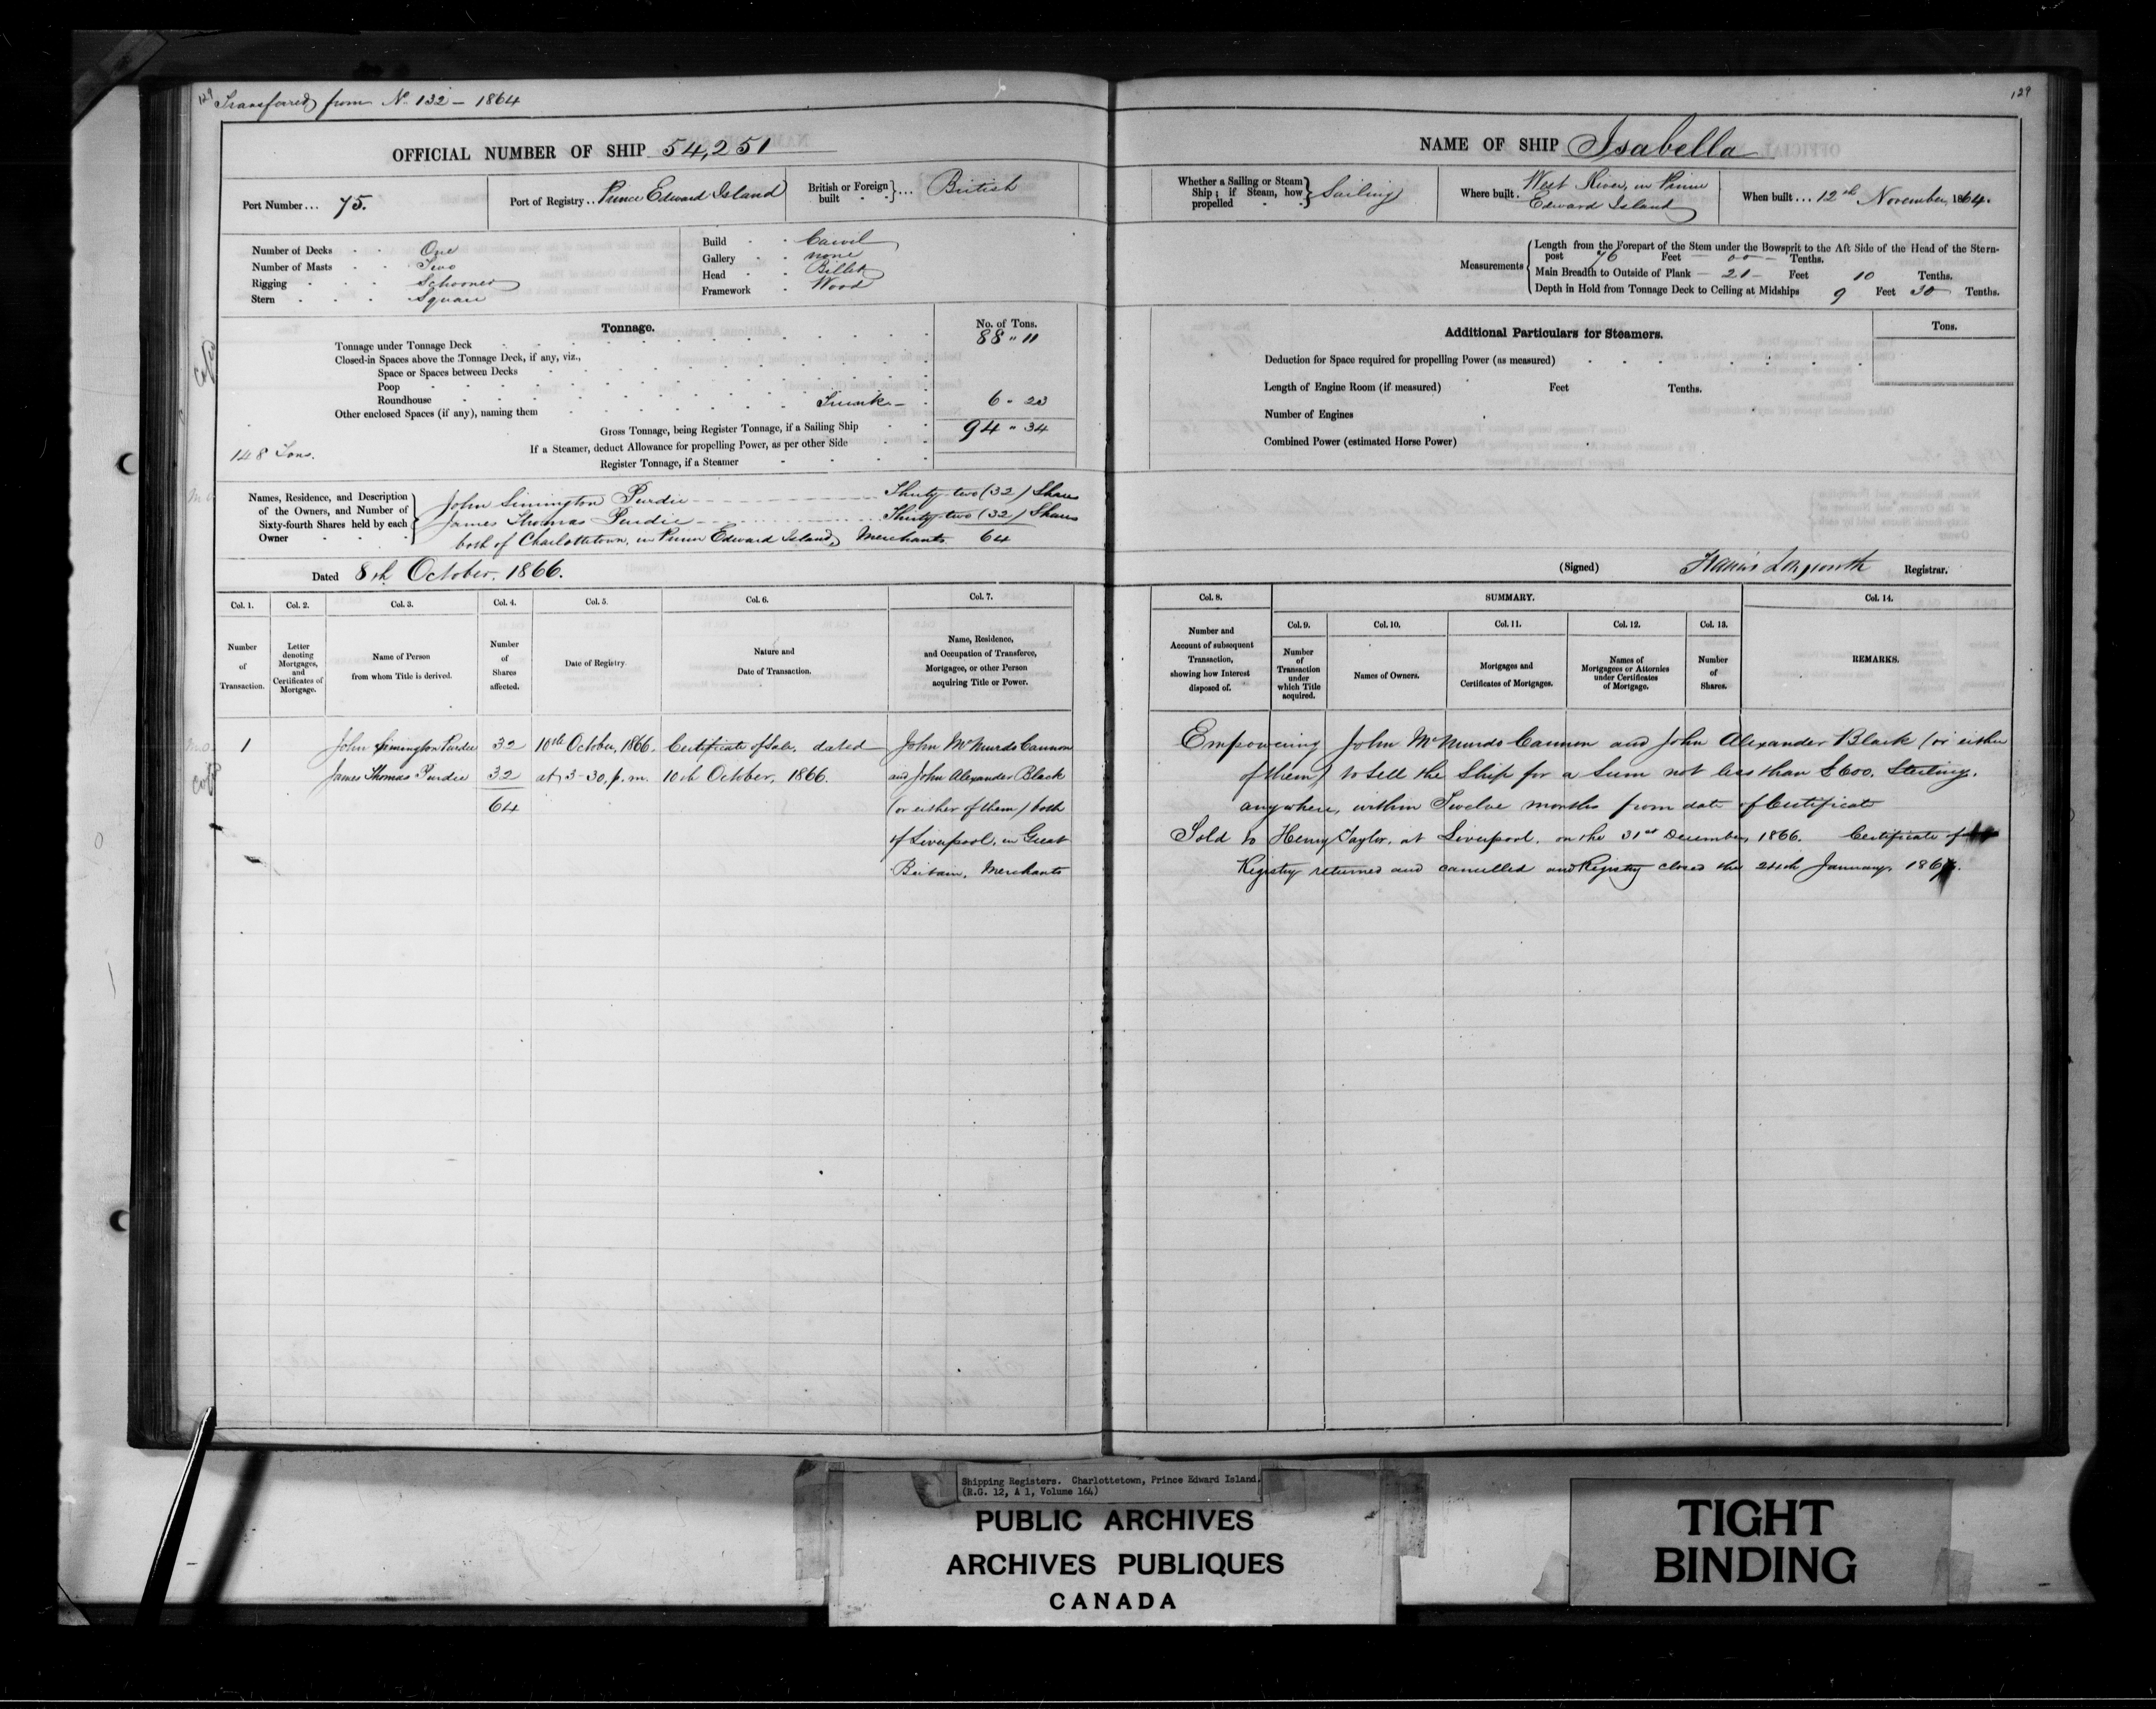 129
Transferred from No. 132 - 1864
129
OFFICIAL NUMBER OF SHIP 54,251
NAME OF SHIP Isabella
Port Number... 75.
Port of Registry.. Prince Edward Island
British or Foreign built ... British
Whether a Sailing or Steam Ship; if Steam, how propelled Sailing
Where built. West River, in Prince Edward Island
When built... 12th November, 1864.
Number of Decks One
Number of Masts Two
Rigging Schooner
Stern Square
Build Carvil
Gallery none
Head Billet
Framework Wood
Measurements
Length from the Forepart of the Stem under the Bowsprit to the Aft Side of the Head of the Stern-
post 76 Feet 00 Tenths.
Main Breadth to Outside of Plank 21 Feet 10 Tenths.
Depth in Hold from Tonnage Deck to Ceiling at Midships 9 Feet 30 Tenths.
Tonnage. No. of Tons.
Tonnage under Tonnage Deck 88 " 11
Closed-in Spaces above the Tonnage Deck, if any, viz.,
Space or Spaces between Decks
Poop
Roundhouse
Other enclosed Spaces (if any), naming them 6 " 23
Gross Tonnage, being Register Tonnage, if a Sailing Ship 94 " 34
148 Tons.
If a Steamer, deduct Allowance for propelling Power, as per other Side
Register Tonnage, if a Steamer
Additional Particulars for Steamers. Tons.
Deduction for Space required for propelling Power (as measured)
Length of Engine Room (if measured) Feet Tenths.
Number of Engines
Combined Power (estimated Horse Power)
Names, Residence, and Description of the Owners, and Number of Sixty-fourth Shares held by each Owner
John Simington Purdie Thirty-two (32) Shares
James Thomas Purdie Thirty-two (32) Shares
both of Charlottetown, in Prince Edward Island, Merchants 64
Dated 8th October, 1866.
(Signed) Registrar.
Col. 1. Col. 2. Col. 3. Col. 4. Col. 5. Col. 6. Col. 7.
Number of Transaction.
Letter denoting Mortgages, and Certificates of Mortgage.
Name of Person from whom Title is derived.
Number of Shares affected.
Date of Registry.
Nature and Date of Transaction.
Name, Residence, and Occupation of Transferee, Mortgagee, or other Person acquiring Title or Power.
Col. 8. SUMMARY. Col. 14.
Col. 9. Col. 10. Col. 11. Col. 12. Col. 13.
Number and Account of subsequent Transaction, showing how Interest disposed of.
Number of Transaction under which Title acquired.
Names of Owners.
Mortgages and Certificates of Mortgages.
Names of Mortgagees or Attornies under Certificates of Mortgage.
Number of Shares.
REMARKS.
1 John Simington Purdie 32 10th October, 1866. Certificate of Sale, dated John McMurdo Cannon
James Thomas Purdie 32 at 3-30, p.m. 10th October, 1866. and John Alexander Black
64 (or either of them) both
of Liverpool, in Great
Britain, Merchants
Empowering John McMurdo Cannon and John Alexander Black (or either
of them) to sell the Ship for a sum not less than £600. Sterling.
anywhere, within Twelve months from date of Certificate
Sold to Henry Taylor, at Liverpool, on the 31st December, 1866. Certificate of
Registry returned and cancelled and Registry closed the 24th January, 1867.
Shipping Registers. Charlottetown, Prince Edward Island.
(R.G. 12, A 1, Volume 164)
PUBLIC ARCHIVES
ARCHIVES PUBLIQUES
CANADA
TIGHT
BINDING